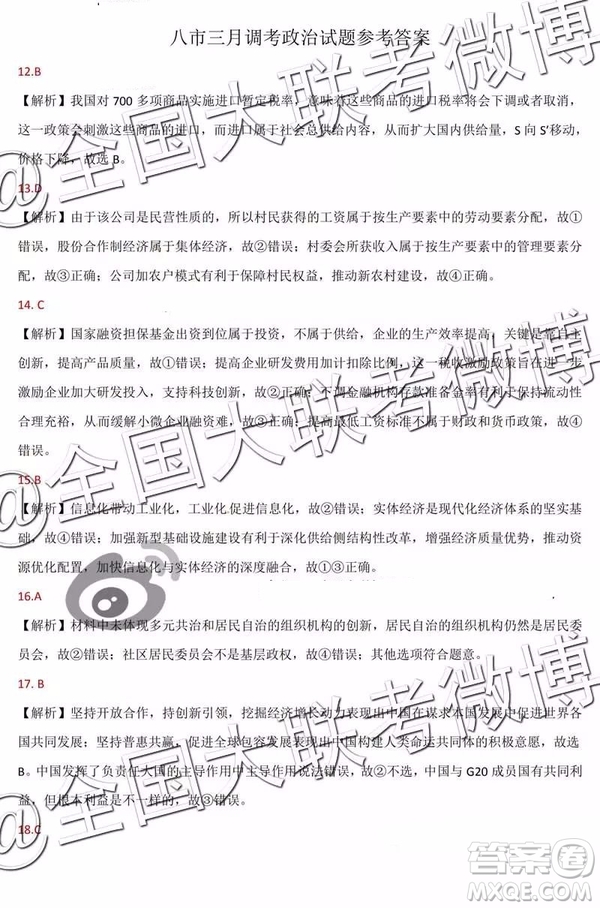 八市三月调考政治试题参考答案
12.B
【解析】我国对 700 多项商品实施进口暂定税率，意味着这些商品的进口税率将会下调或者取消，
这一政策会刺激这些商品的进口，而进口属于社会总供给，从而扩大国内供给量，S 向 S'移动，
价格下降，故选 B。
13.D
【解析】由于该公司是民营性质的，所以村民获得的工资属于按生产要素中的劳动要素分配，故①
错误，股份合作制经济属于集体经济，故②错误；村委会所获收入属于按生产要素中的管理要素分
配，故③正确；公司加农户模式有利于保障村民权益，推动新农村建设，故④正确。
14. C
【解析】国家融资担保基金出资到位属于投资，不属于供给，企业的生产效率提高，关键是靠自主
创新，提高产品质量，故①错误；提高企业研发费用加计扣除比例，这一税收激励政策旨在进一步
激励企业加大研发投入，支持科技创新，故②正确；下调金融机构存款准备金率有利于保持流动性
合理充裕，从而缓解小微企业融资难，故③正确；提高最低工资标准不属于财政和货币政策，故④
错误。
15.B
【解析】信息化带动工业化，工业化促进信息化，故②错误；实体经济是现代化经济体系的坚实基
础，故④错误；加强新型基础设施建设有利于深化供给侧结构性改革，增强经济发展动能，推动资
源优化配置，加快信息化与实体经济的深度融合，故①③正确。
16.A
【解析】材料中未体现多元共治和居民自治的组织机构的创新，居民自治的组织机构仍然是居民委
员会，故①错误；社区居民委员会不是行政机构，故④错误；其他选项符合题意。
17. B
【解析】坚持开放合作，持创新引领，挖掘经济增长动力表现出中国在谋求本国发展中促进世界各
国共同发展；坚持普惠共赢，促进全球包容发展表现出中国构建人类命运共同体的积极意愿，故选
B。中国发挥了负责任大国的主导作用中主导作用说法错误，故②不选，中国与 G20 成员国有共同利
益，但根本利益是不一样的，故③错误。
18.C
@全国大联考微博
@全国大联考微博
@全国大联考微博
答案卷
MXQE.COM